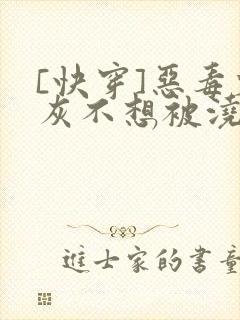 [快穿]惡毒
灰不想被澆
進士家的書童